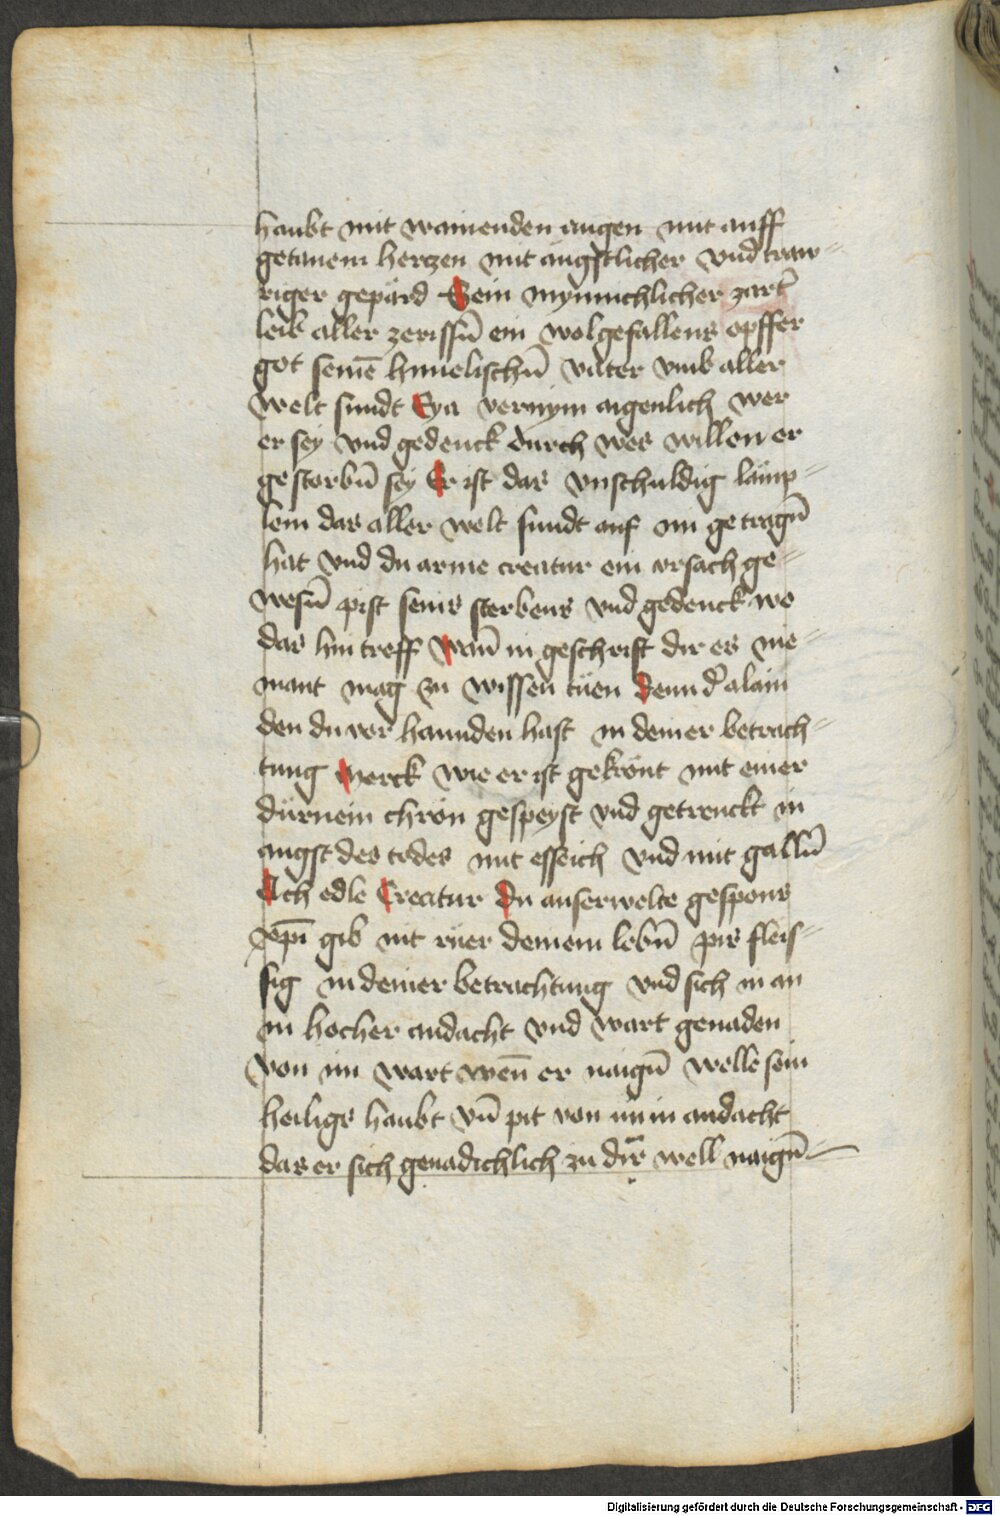 haubt mit wainenden augen mit auff
getanem hertzen mit angstlicher vnd traw⸗
riger gepärd Sein mynnichlicher zart̉
leib aller zerissn̄ ein wolgefallens opffer
got seinē himelischn̄ vater vmb aller
welt sundt Eya vernym aigenlich wer
er sey vnd gedenck durch wes willen er
gestorbn̄ sey Er ist das vnschuldig lämp⸗
lein das aller welt sundt auf im getragn̄
hat vnd du arme creatur ein vrsach ge⸗
wesn̄ pist seins sterbens vnd gedenck we
das hin treff wan̄ in geschrift dir es nie⸗
mant mag zu wissen tüen denn d̉ alain
den du vor hannden hast in deiner betrach⸗
tung Merck wie er ist gekrönt mit einer
dürnein chron gespeyst vnd getrenckt in
angst des todes mit esseich vnd mit galln̄
Ach edle Creatur Du auserwelte gespons
xp̄i gib nit rüer deinem lebn̄ pis fleis⸗
sig in deiner betrachtung vnd sich in an
in hocher andacht vnd wart genaden
von im wart wen̄ er naign̄ welle sein
heiligs haubt vn̄ pit von im in andacht
das er sich genadichlich zu dir well naign̄
Digitalisierung gefördert durch die Deutsche Forschungsgemeinschaft - DFG